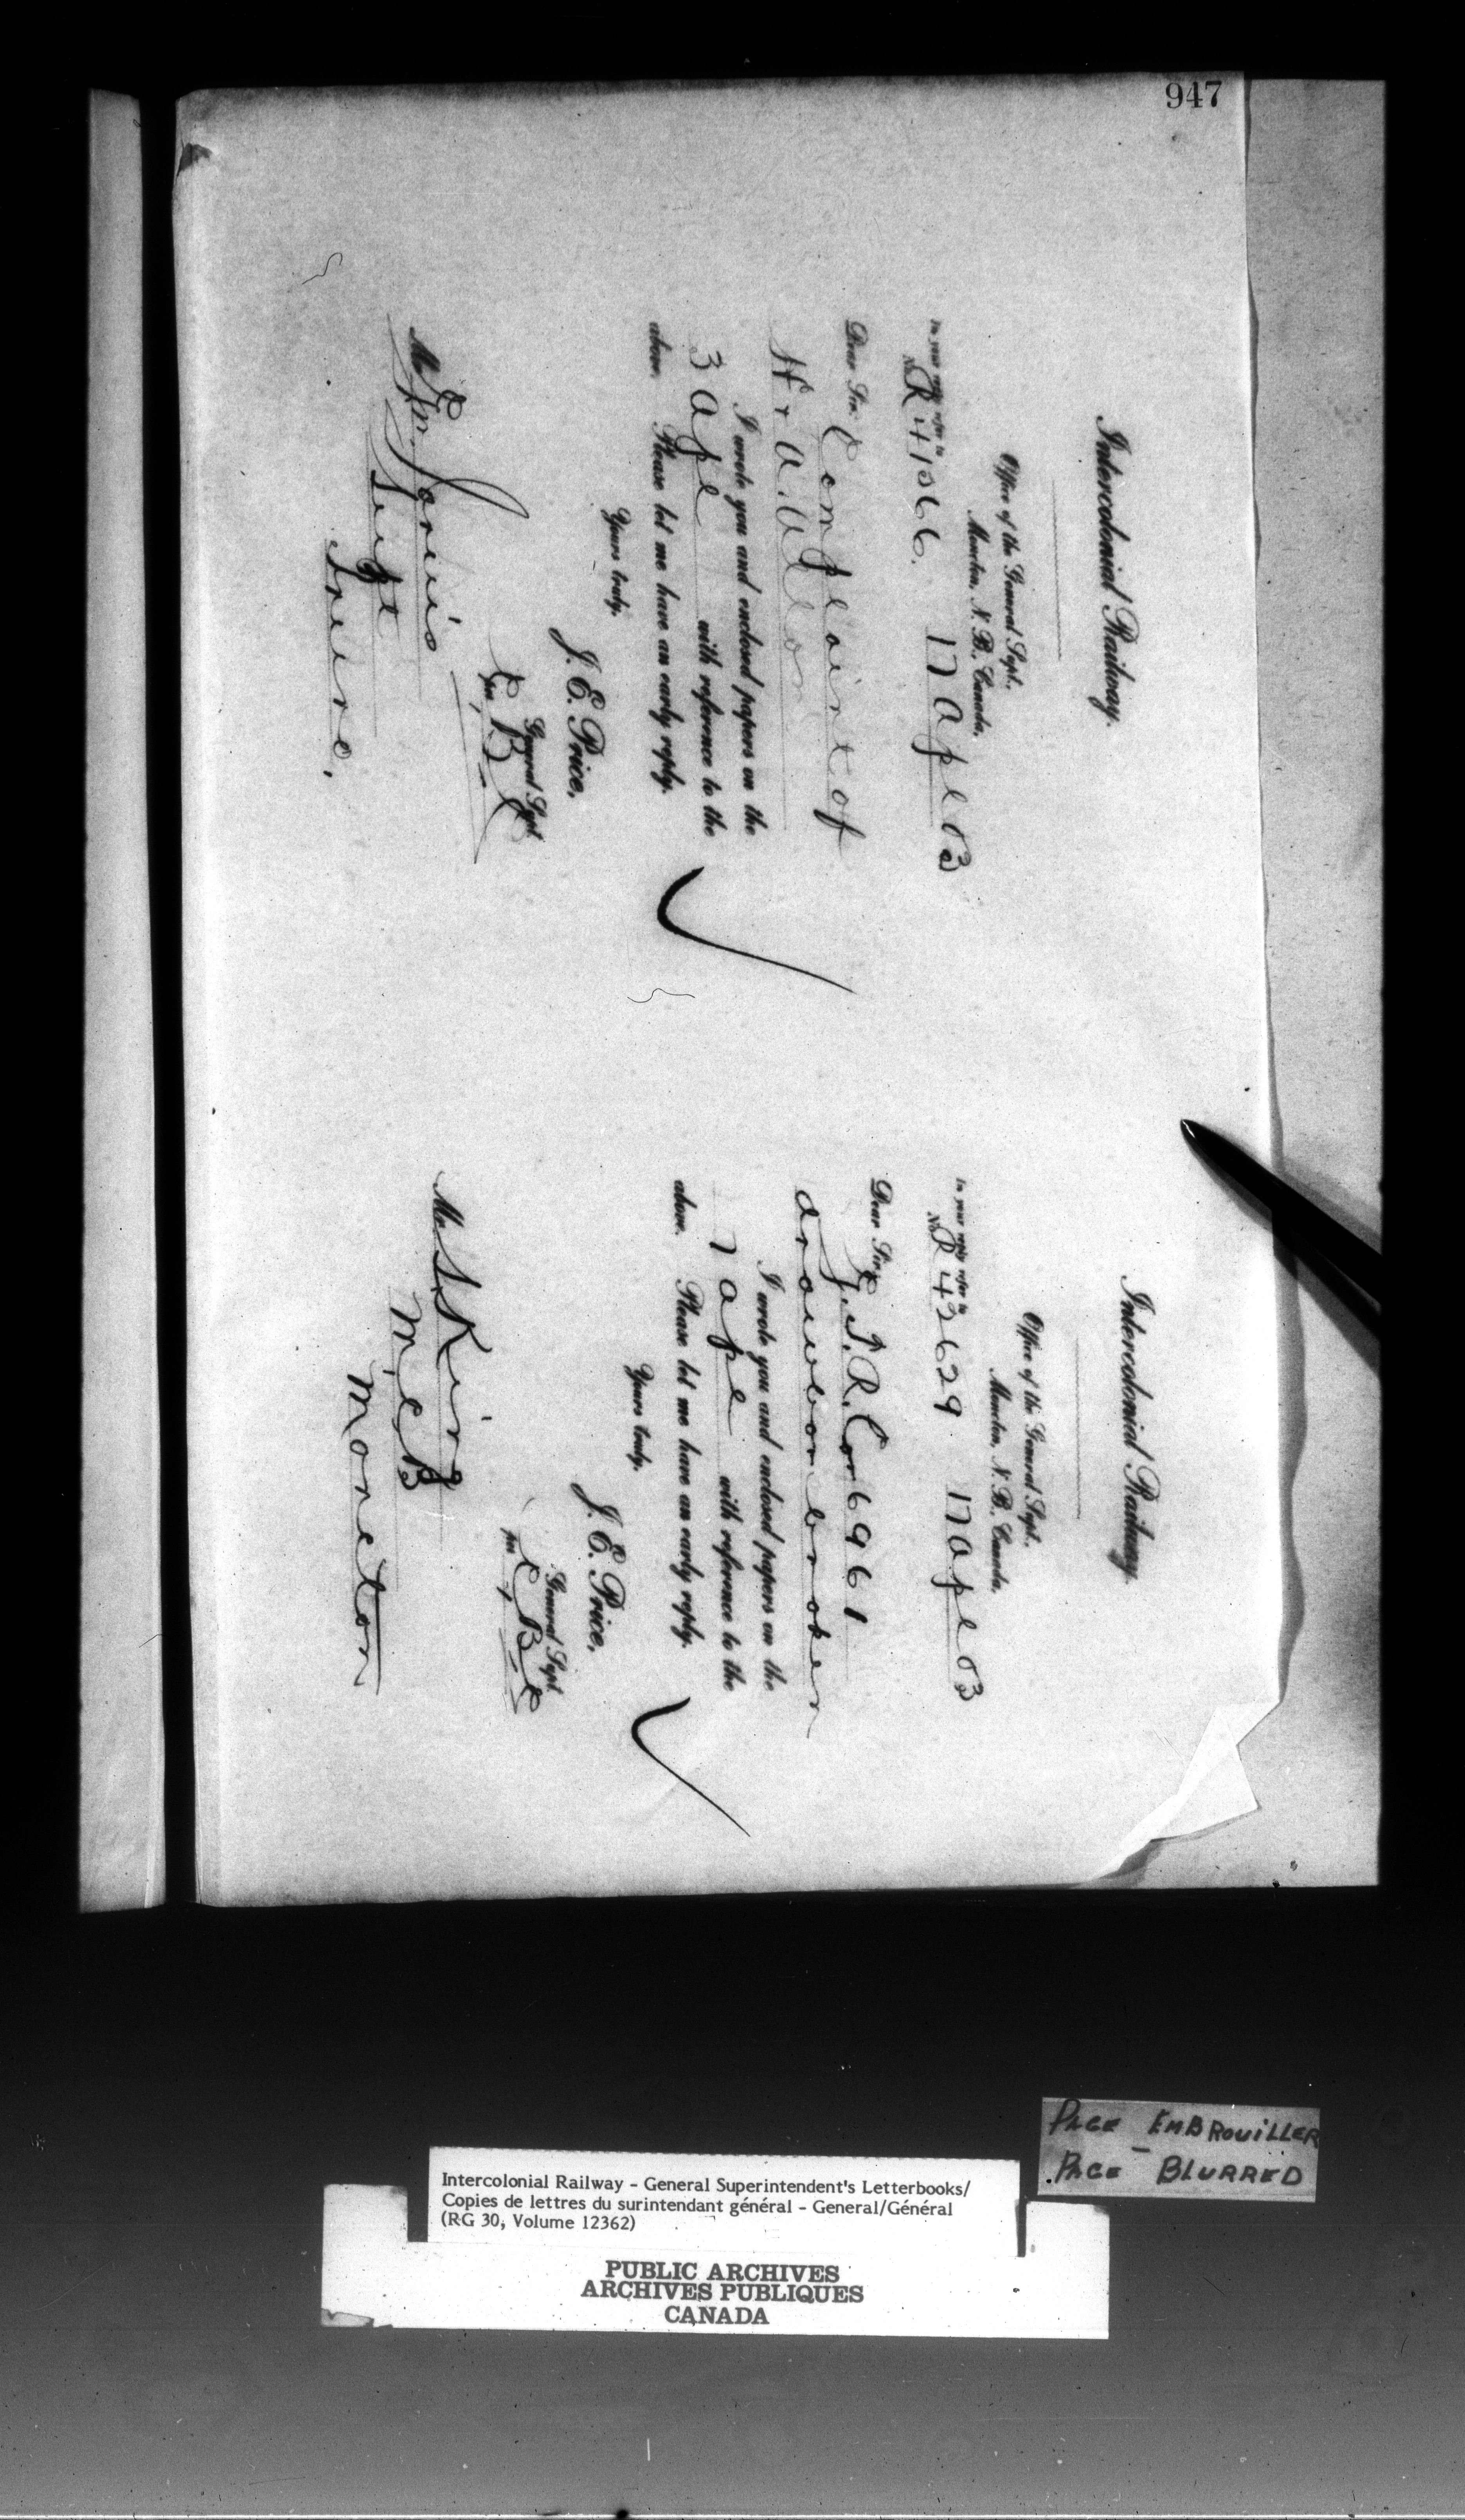 947
Intercolonial Railway.
Office of the General Supt.,
Moncton, N. B., Canada,
In your reply refer to
No. R 41066. 17 Apl 03
Dear Sir: Complaint of
I wrote you and enclosed papers on the
3 Apl with reference to the
above. Please let me have an early reply.
Yours truly,
J. E. Price,
General Supt
per
Mr Jarvis
Supt
Truro.
Intercolonial Railway.
Office of the General Supt.,
Moncton, N. B., Canada,
In your reply refer to
No. R 43629 17 Apl 03
Dear Sir: G.T.R. Car 6961
drawbar broken
I wrote you and enclosed papers on the
7 Apl with reference to the
above. Please let me have an early reply.
Yours truly,
J. E. Price,
General Supt
per
Mr. S. King
M.C.B
Moncton
PAGE EMBROUILLER
PAGE BLURRED
Intercolonial Railway - General Superintendent's Letterbooks/
Copies de lettres du surintendant général - General/Général
(RG 30, Volume 12362)
PUBLIC ARCHIVES
ARCHIVES PUBLIQUES
CANADA